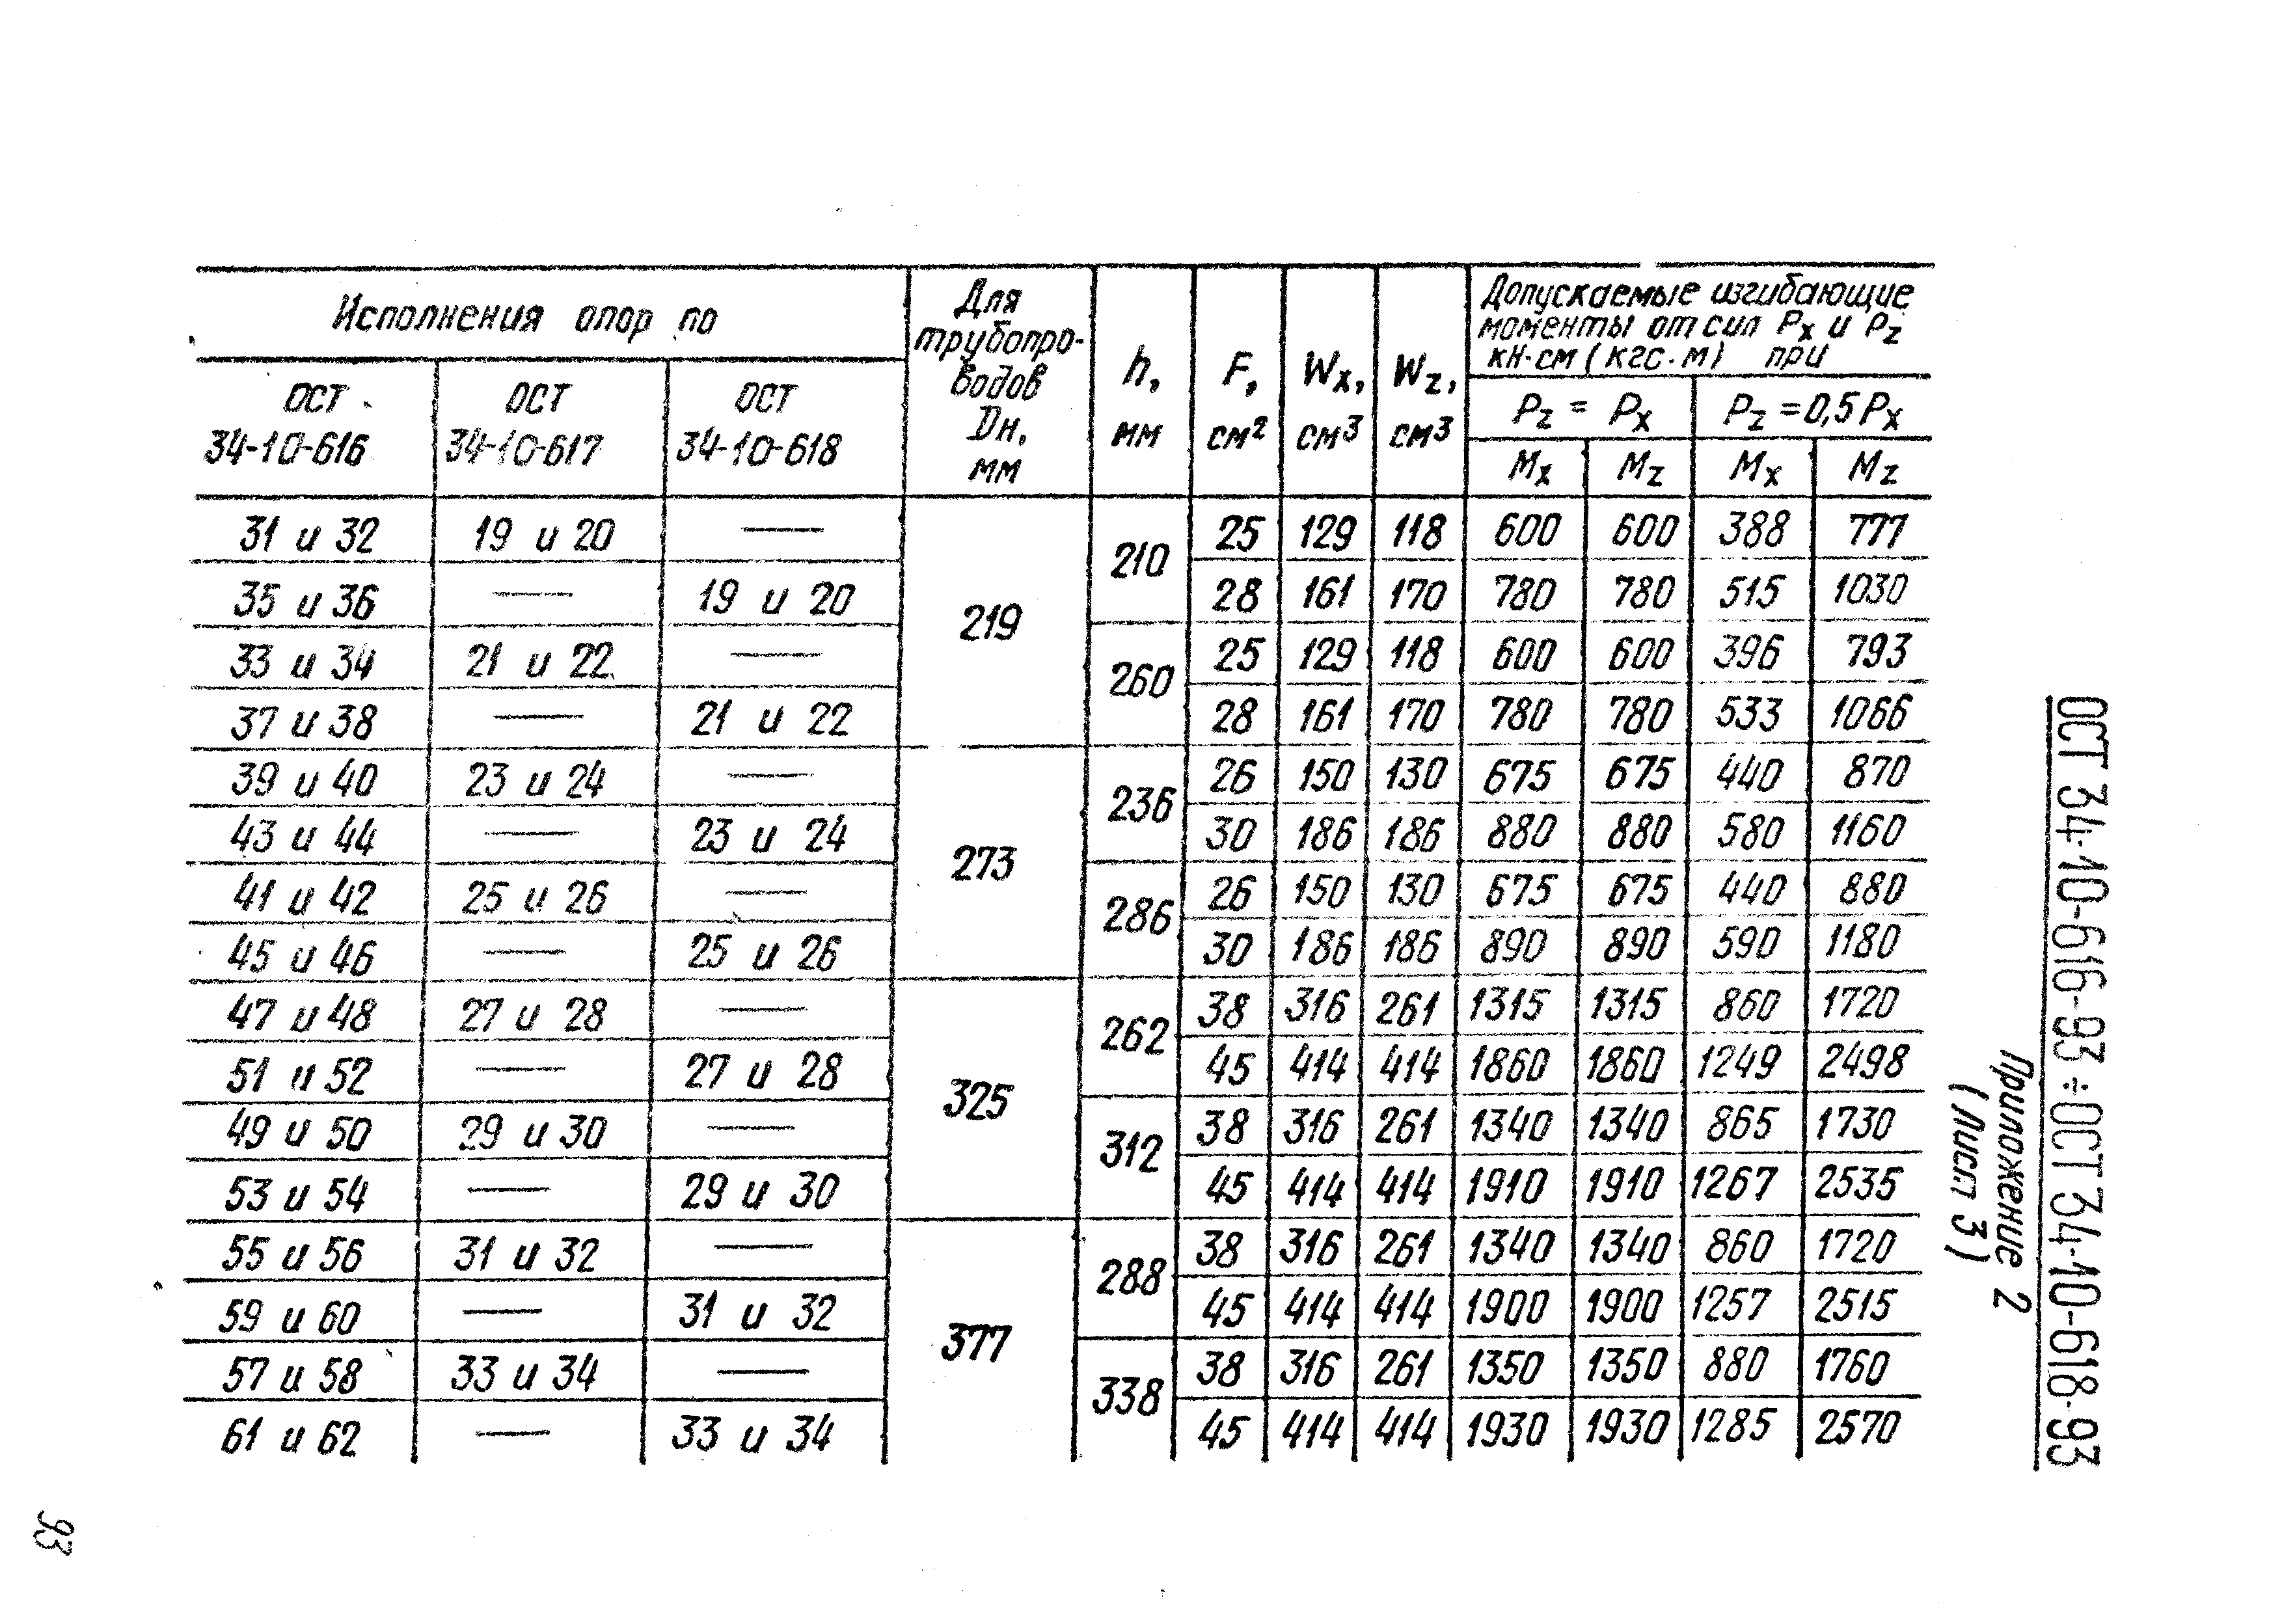 Исполнения опор по
ОСТ 34-10-616
ОСТ 34-10-617
ОСТ 34-10-618
Для
трубопро-
водов
Dн,
мм
h, мм
F, см²
Wx, см³
Wz, см³
Допускаемые изгибающие
моменты от сил Px и Pz
кН·см (кгс·м) при
Pz = Px
Pz = 0,5 Px
Mx Mz Mx Mz
31 и 32 19 и 20 — 219 210 25 129 118 600 600 388 777
35 и 36 — 19 и 20 28 161 170 780 780 515 1030
33 и 34 21 и 22 — 260 25 129 118 600 600 396 793
37 и 38 — 21 и 22 28 161 170 780 780 533 1066
39 и 40 23 и 24 — 273 236 26 150 130 675 675 440 870
43 и 44 — 23 и 24 30 186 186 880 880 580 1160
41 и 42 25 и 26 — 286 26 150 130 675 675 440 880
45 и 46 — 25 и 26 30 186 186 890 890 590 1180
47 и 48 27 и 28 — 325 262 38 316 261 1315 1315 860 1720
51 и 52 — 27 и 28 45 414 414 1860 1860 1249 2498
49 и 50 29 и 30 — 312 38 316 261 1340 1340 865 1730
53 и 54 — 29 и 30 45 414 414 1910 1910 1267 2535
55 и 56 31 и 32 — 377 288 38 316 261 1340 1340 860 1720
59 и 60 — 31 и 32 45 414 414 1900 1900 1257 2515
57 и 58 33 и 34 — 338 38 316 261 1350 1350 880 1760
61 и 62 — 33 и 34 45 414 414 1930 1930 1285 2570
ОСТ 34-10-616-93 ÷ ОСТ 34-10-618-93
Приложение 2
(Лист 3)
93